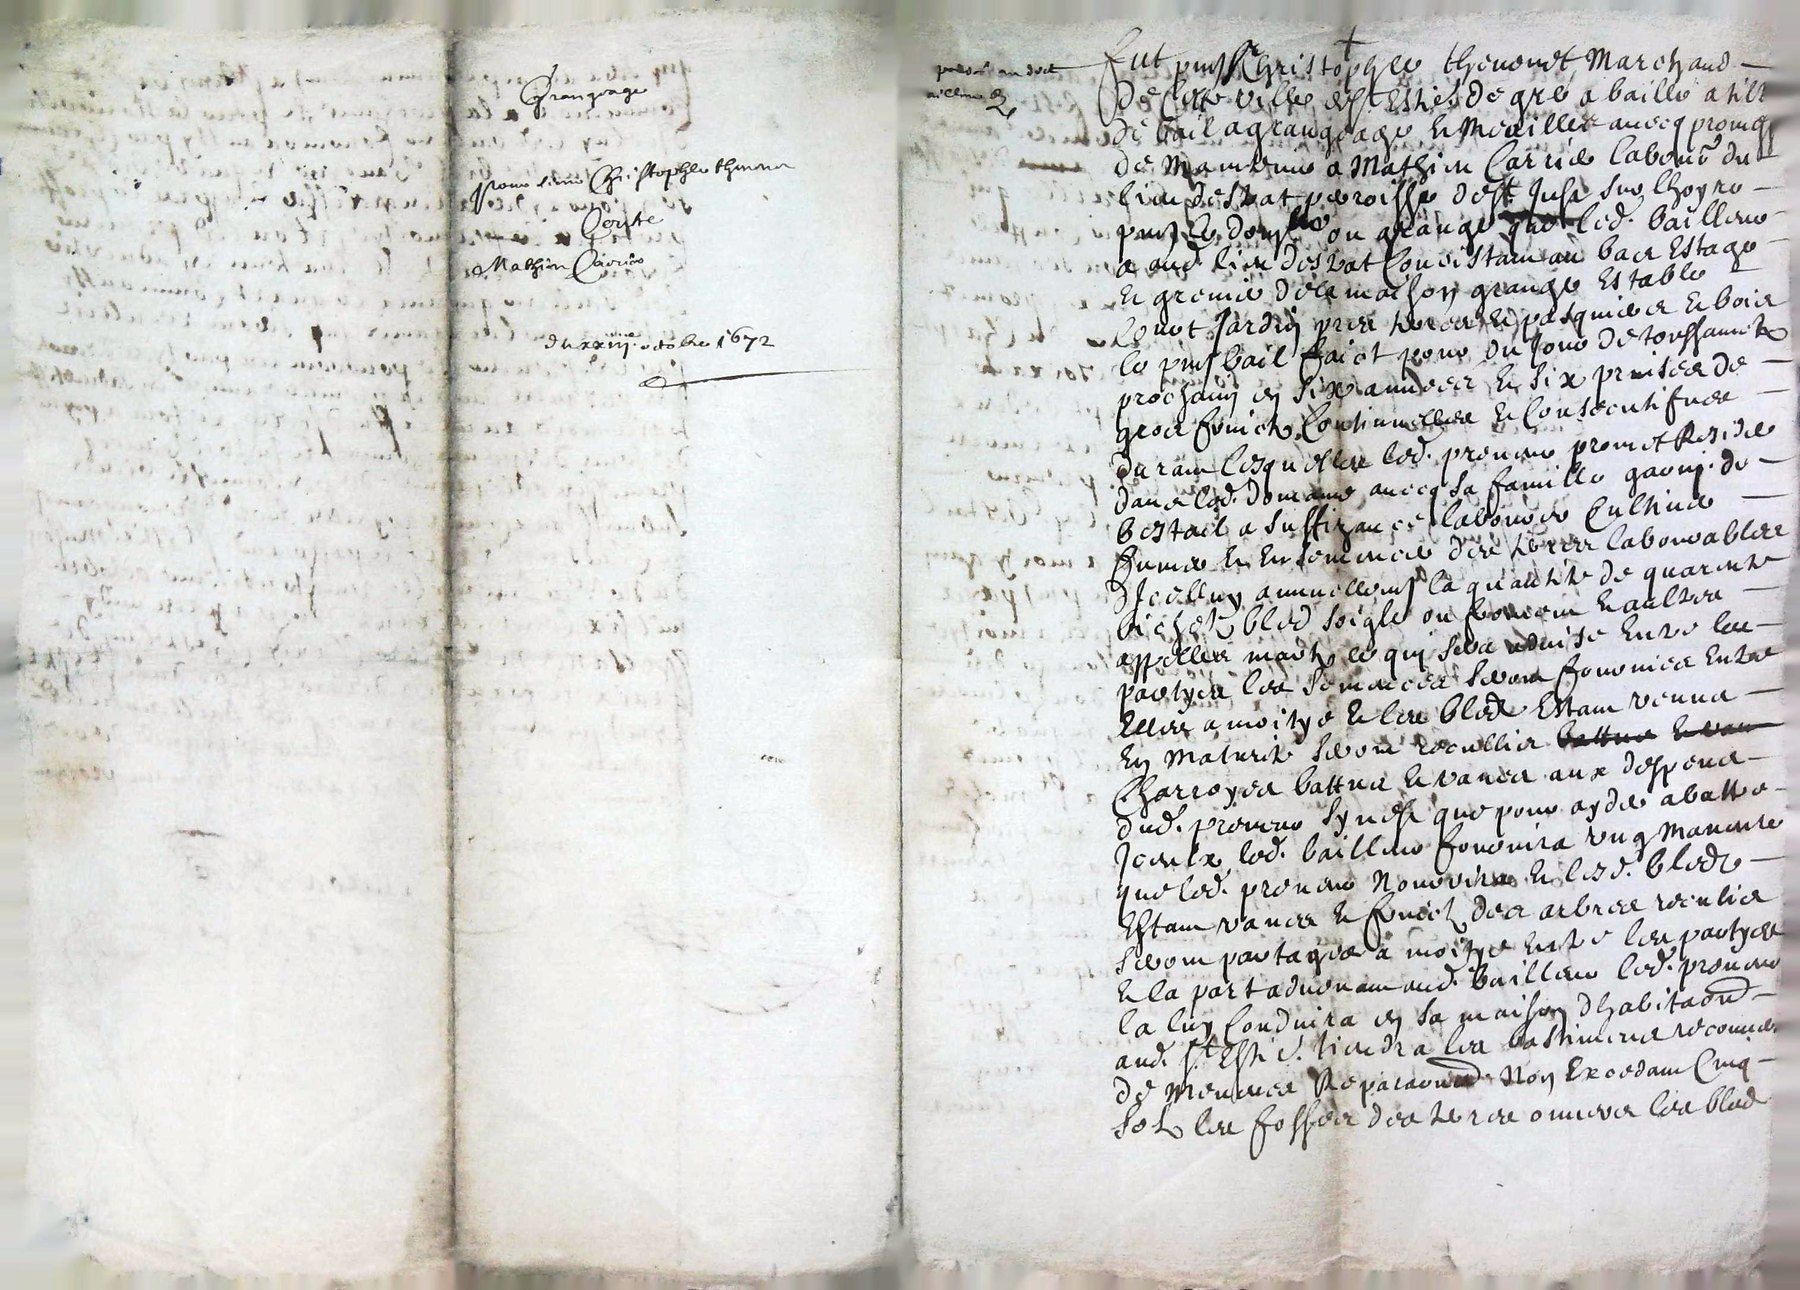 Grangeage
pour sieur Christophle thevenet
Contre
Mathieu Carrié
du xxiij me octobre 1672
fut pnt Sr Christophle thevenet Marchand
de cette ville de St Estie de gré a baillé a tilt
de bail a grangeage et Meaillerie avecq promesse
de maintenue a Mathieu Carrié labour du
lieu destrat parroisse de St Just sur lhoyre
pnt le domaine ou grange que led. bailleur
a aud. lieu destrat Consistant au bas Estage
et grenie de la maison grange Estable
Couvt Jardin prés terres et pasquiers et bois
le pnt bail faict pour du Jour de toussainctz
prochain en six années et six prinses de
gros fruictz Continuelles et Consecutifves
durant lesquelles led. preneur promet Reside
dans led. domaine avecq sa famille garny de
bestail a suffizance labourer Cultive
fume et Ensemence des terres labourables
dIcelluy annuellemt la quantité de quarente
bichetz bled soigle ou froment et aultres
appellés martz ce qui sera advisé Entre les
partyes les semences seront fournies Entre
Elles a moitye et les bleds Estant venus
En Maturité seront recullis battus et van
Charroyes battus et vanes aux despens
dud. preneur synon que pour ayder a battre
Iceulx led. bailleur fournira ung Maneuvre
que led. preneur Nourrira et lesd. bleds
Estant vanes et fruictz des arbres recullis
seront partages a moitye Entre les partyes
et la part advenant aud. bailleur led. preneur
la luy Conduira en sa maison dhabitaon
aud. St Estie. tiendra les bastimens recouverts
de menues Reparaons Non Excedant Cinq
solz les fosses des terres ouvers les bleds